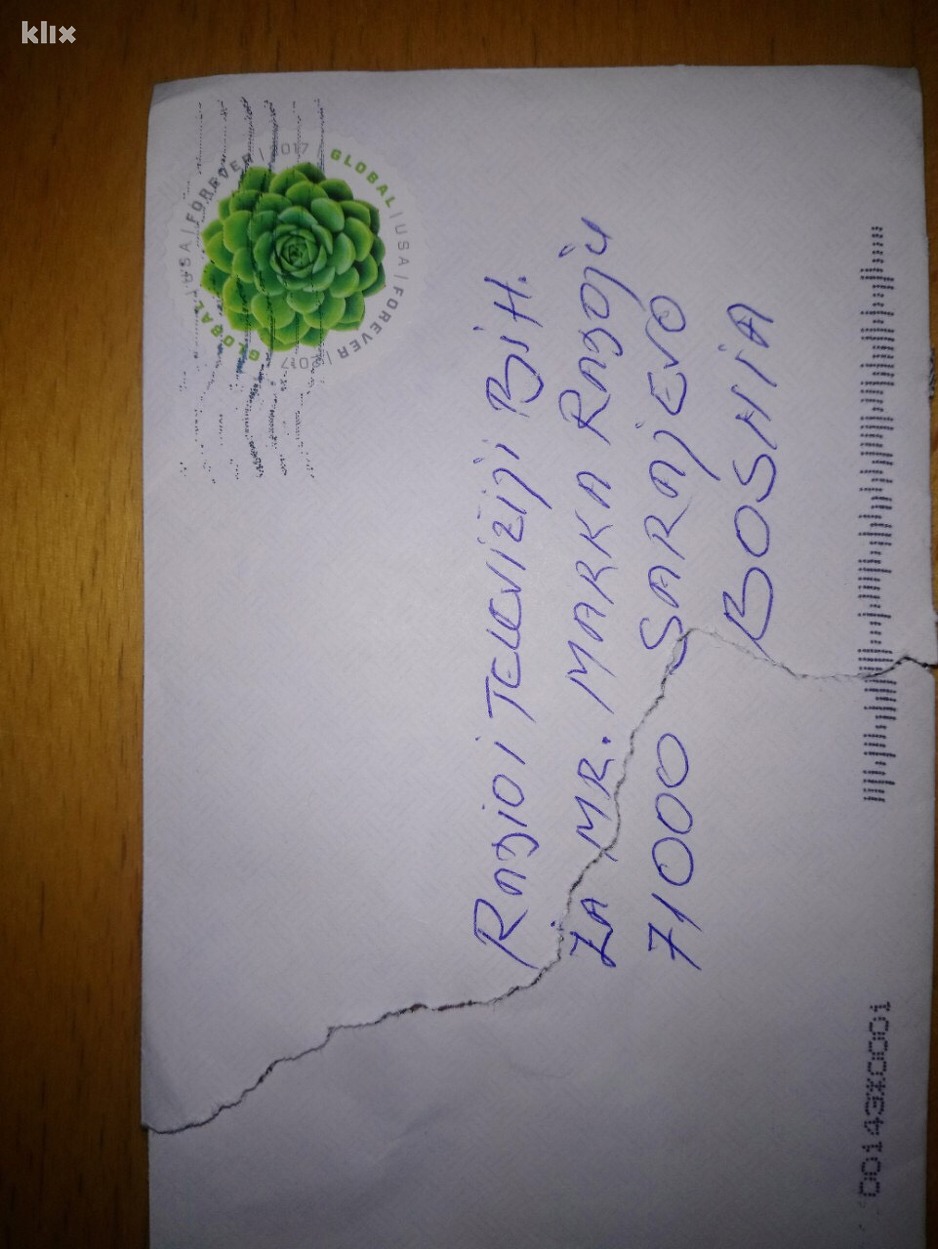 klix
GLOBAL | USA | FOREVER | 2017
GLOBAL | USA | FOREVER | 2017
RADIO I TELEVIZIJI BIH.
ZA MR. MARKA RADOJU
71000 SARAJEVO
BOSNIA
00143X0001